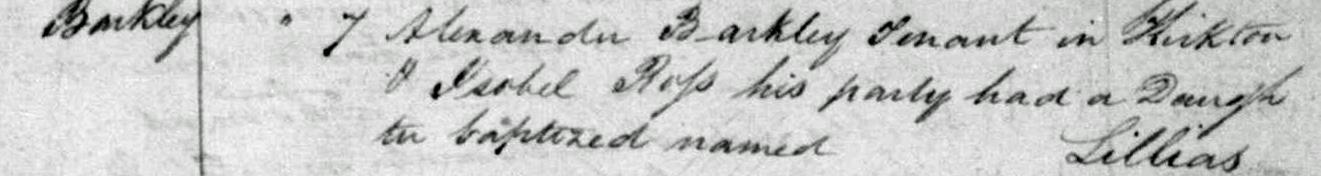 Barkley " 7 Alexander Barkley Tenant in Kirkton
& Isobel Ross his party had a Daugh
ter baptized named Lillias